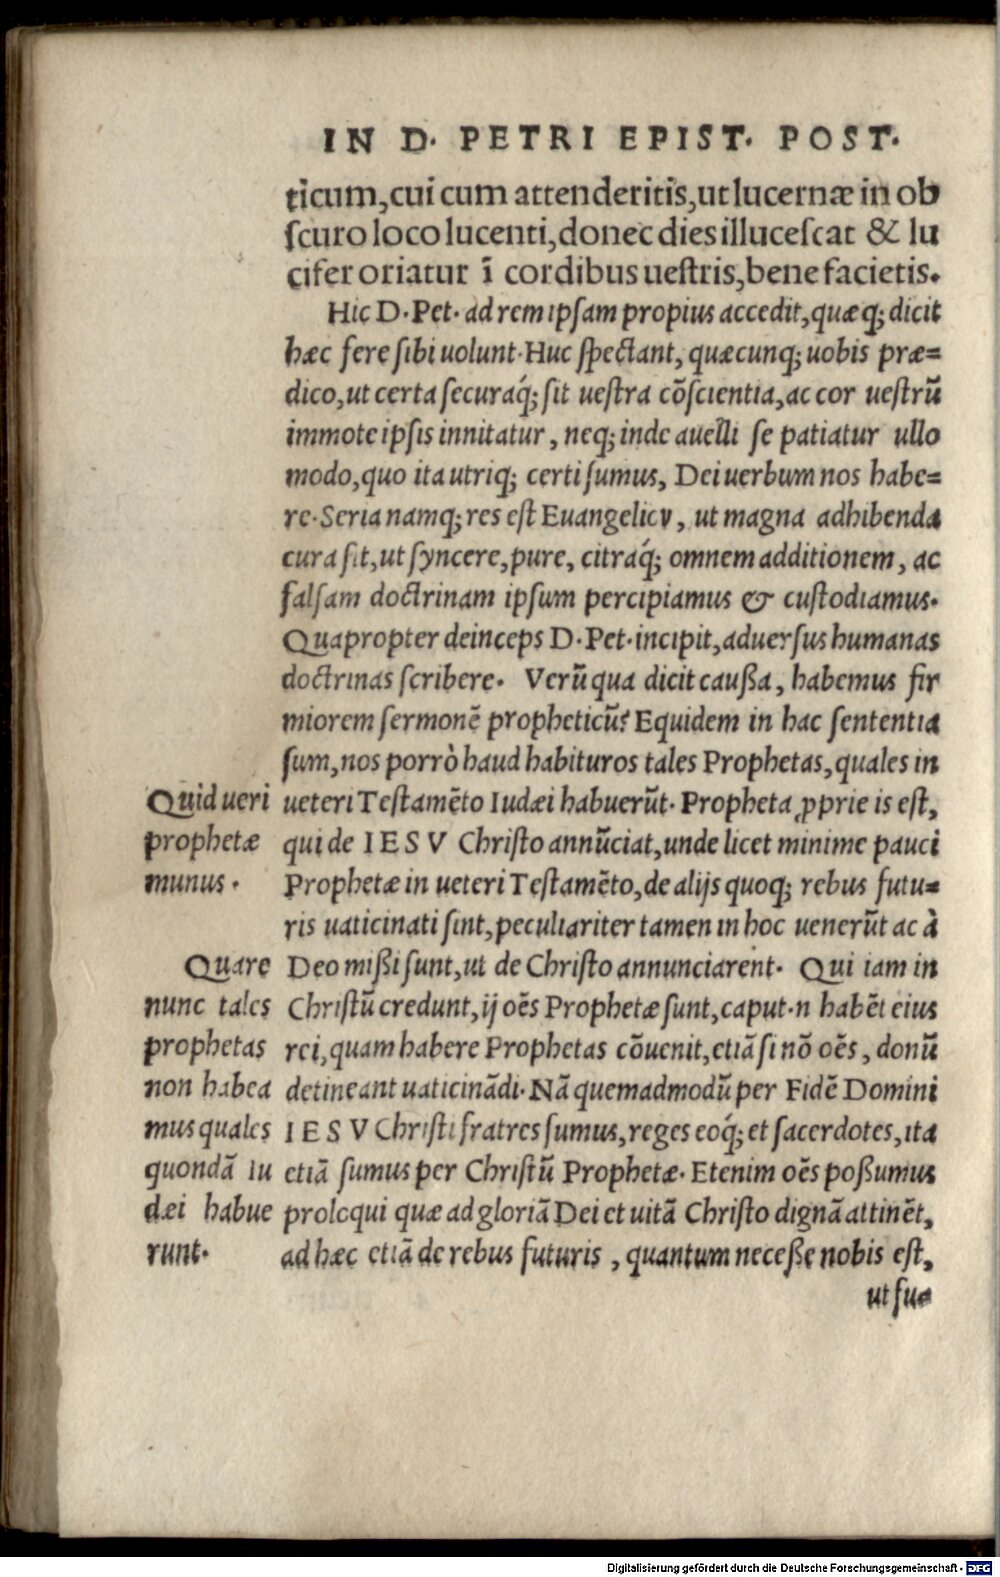 IN D. PETRI EPIST. POST.
ticum, cui cum attenderitis, ut lucernæ in ob
ſcuro loco lucenti, donec dies illuceſcat & lu
cifer oriatur ī cordibus ueſtris, bene facietis.
Hic D. Pet. ad rem ipſam propius accedit, quæq; dicit
hæc fere ſibi uolunt. Huc ſpectant, quæcunq; uobis præ=
dico, ut certa ſecuraq́; ſit ueſtra cōſcientia, ac cor ueſtrū
immote ipſis innitatur, neq; inde auelli ſe patiatur ullo
modo, quo ita utriq; certi ſumus, Dei uerbum nos habe=
re. Seria namq; res eſt Euangelicv, ut magna adhibenda
cura ſit, ut ſyncere, pure, citraq́; omnem additionem, ac
falſam doctrinam ipſum percipiamus & cuſtodiamus.
Quapropter deinceps D. Pet. incipit, aduerſus humanas
doctrinas ſcribere. Verū qua dicit caußa, habemus fir
miorem ſermonē propheticū? Equidem in hac ſententia
ſum, nos porrò haud habituros tales Prophetas, quales in
Quid ueri
prophetæ
munus.
ueteri Teſtamēto Iudæi habuerūt. Propheta ꝓprie is eſt,
qui de IESV Chriſto annūciat, unde licet minime pauci
Prophetæ in ueteri Teſtamēto, de alijs quoq; rebus futu=
ris uaticinati ſint, peculiariter tamen in hoc uenerūt ac à
Quare
nunc tales
prophetas
non habea
mus quales
quondā Iu
dæi habue
runt.
Deo mißi ſunt, ut de Chriſto annunciarent. Qui iam in
Chriſtū credunt, ij oēs Prophetæ ſunt, caput.n habēt eius
rei, quam habere Prophetas cōuenit, etiā ſi nō oēs, donū
detineant uaticinādi. Nā quemadmodū per Fidē Domini
IESV Chriſti fratres ſumus, reges eoq́; et ſacerdotes, ita
etiā ſumus per Chriſtū Prophetæ. Etenim oēs poßumus
proloqui quæ ad gloriā Dei et uitā Chriſto dignā attinēt,
ad hæc etiā de rebus futuris, quantum neceße nobis eſt,
ut ſu=
Digitalisierung gefördert durch die Deutsche Forschungsgemeinschaft - DFG